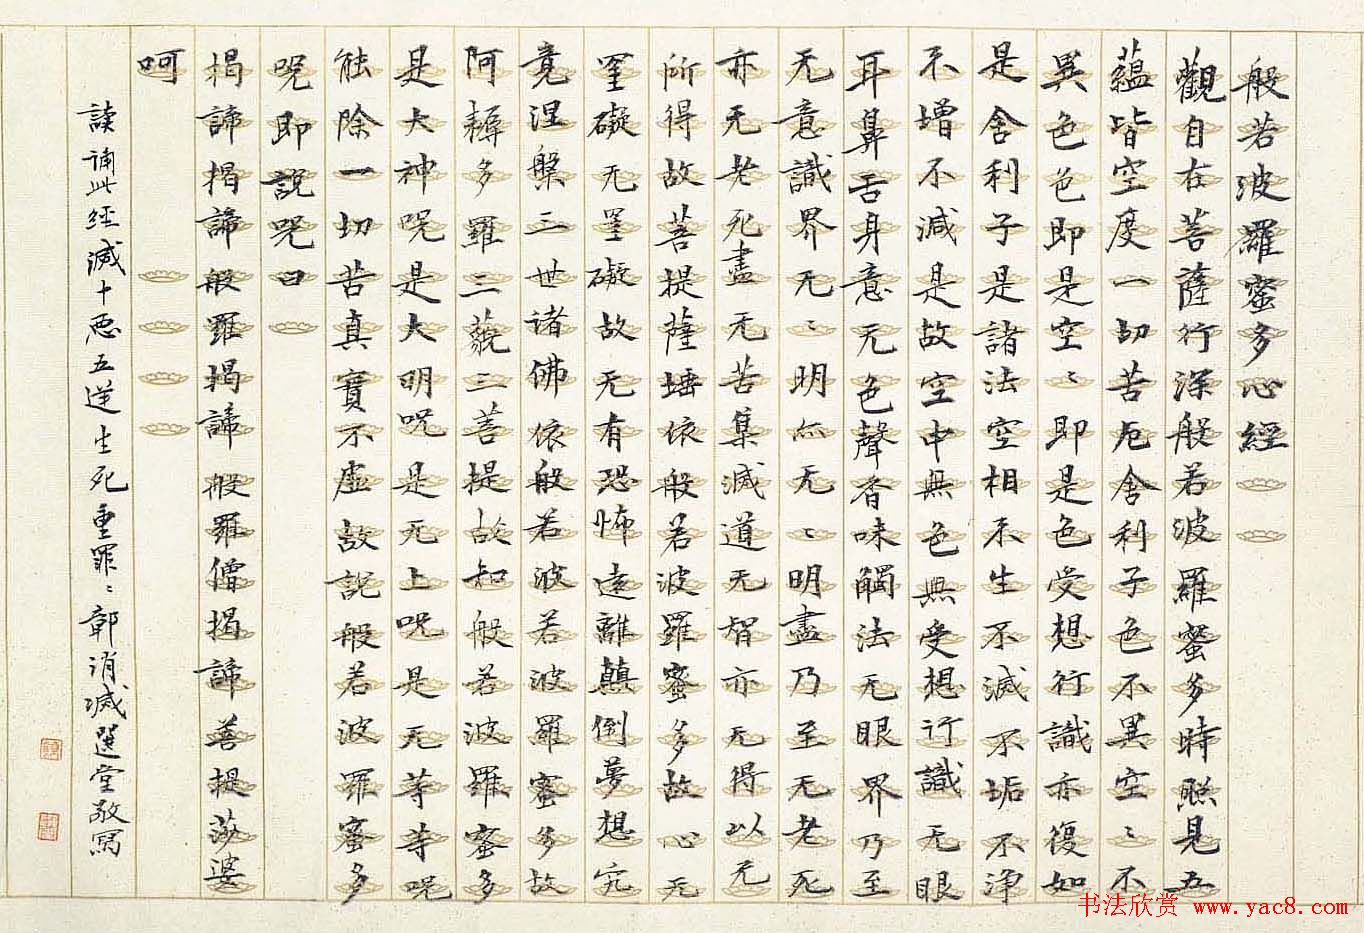 般若波羅蜜多心經
觀自在菩薩行深般若波羅蜜多時照見五
蘊皆空度一切苦厄舍利子色不異空〻不
異色色即是空〻即是色受想行識亦復如
是舍利子是諸法空相不生不滅不垢不淨
不增不減是故空中無色無受想行識无眼
耳鼻舌身意无色聲香味觸法无眼界乃至
无意識界无〻明亦无〻明盡乃至无老死
亦无老死盡无苦集滅道无智亦无得以无
所得故菩提薩埵依般若波羅蜜多故心无
罣礙无罣礙故无有恐怖遠離顛倒夢想究
竟涅槃三世諸佛依般若波若波羅蜜多故
阿耨多羅三藐三菩提故知般若波羅蜜多
是大神咒是大明咒是无上咒是无等等咒
能除一切苦真實不虛故說般若波羅蜜多
咒即說咒曰
揭諦揭諦般羅揭諦般羅僧揭諦菩提莎婆
呵
讀誦此經滅十惡五逆生死重罪〻鄣消滅選堂敬寫
书法欣赏 www.yac8.com